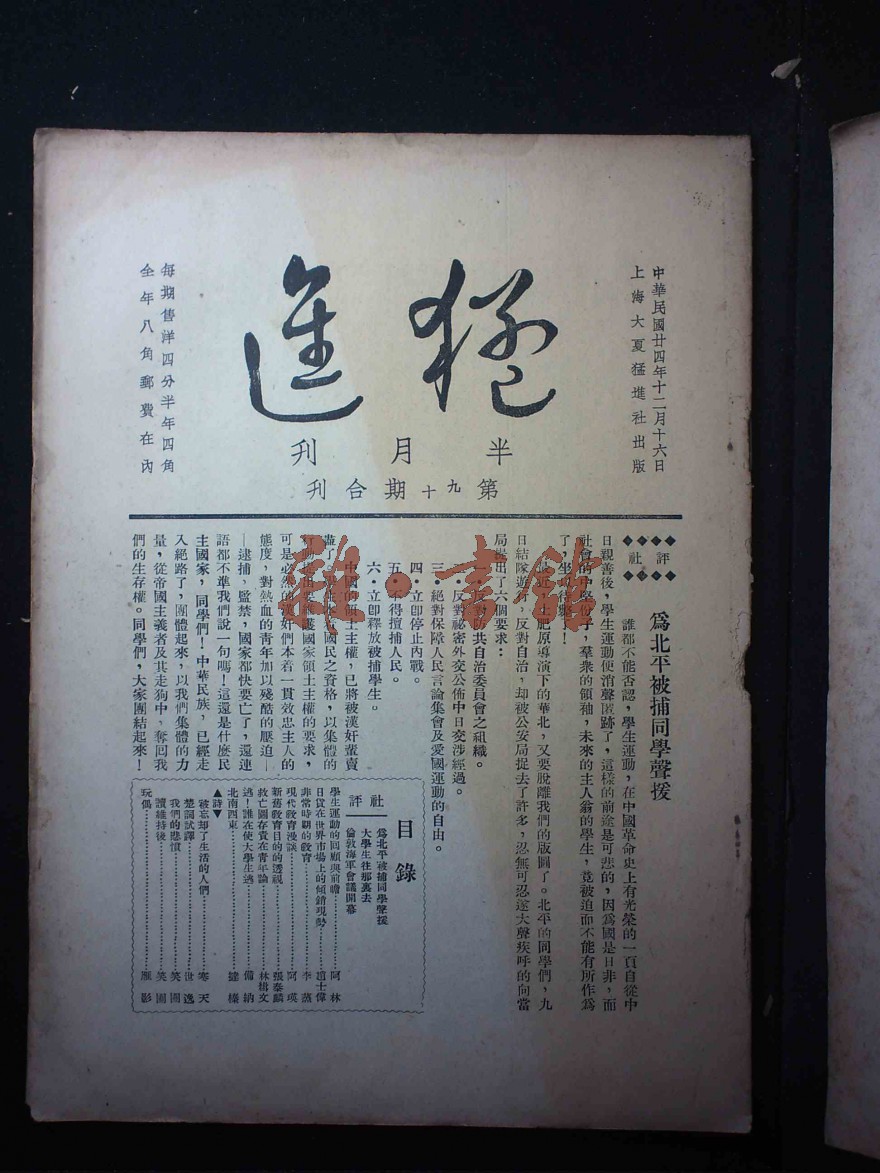 中華民國廿四年十二月十六日
上海大夏猛進社出版
猛進
半月刊
第九十期合刊
每期售洋四分半年四角
全年八角郵費在內
社評
為北平被捕同學聲援
誰都不能否認,學生運動,在中國革命史上有光榮的一頁自從中
日親善後,學生運動便消聲匿跡了,這樣的前途是可悲的,因為國是日非,而
社會的中堅份子,羣衆的領袖,未來的主人翁的學生,竟被迫而不能有所作為
了,坐以待斃!
最近,土肥原導演下的華北,又要脫離我們的版圖了。北平的同學們,九
日結隊遊行,反對自治,却被公安局捉去了許多,忍無可忍遂大聲疾呼的向當
局提出了六個要求:
一・反對防共自治委員會之組織。
二・反對祕密外交公佈中日交涉經過。
三・絕對保障人民言論集會及愛國運動的自由。
四・立卽停止內戰。
五・不得擅捕人民。
六・立卽釋放被捕學生。
中國的領土主權,已將被漢奸輩賣
盡了,學生本國民之資格,以集體的
行動提出要維護國家領土主權的要求,
可是必然的漢奸們本着一貫效忠主人的
態度,對熱血的青年加以殘酷的壓迫—
—逮捕,監禁,國家都快要亡了,還連
語都不準我們說一句嗎!這還是什麼民
主國家,同學們!中華民族,已經走
入絕路了,團體起來,以我們集體的力
量,從帝國主義者及其走狗中,奪回我
們的生存權。同學們,大家團結起來!
目錄
社評
為北平被捕同學聲援
大學生往那裏去
倫敦海軍會議開幕
學生運動的回顧與前瞻……阿林
日貨在世界市場上的傾銷現勢……趙士偉
非常時期的教育……李蒸
現代教育漫談……阿英
新舊教育目的的透視……張泰麟
救亡圖存責在青年論……林楷文
逃!誰在使大學生逃……備納
北南西東……建樓
▲詩▼
被忘却了生活的人們……寒天
楚詞試譯……世逸
我們的悲憤……笑園
讀維持後……笑園
玩偶……雁影
雜・書館